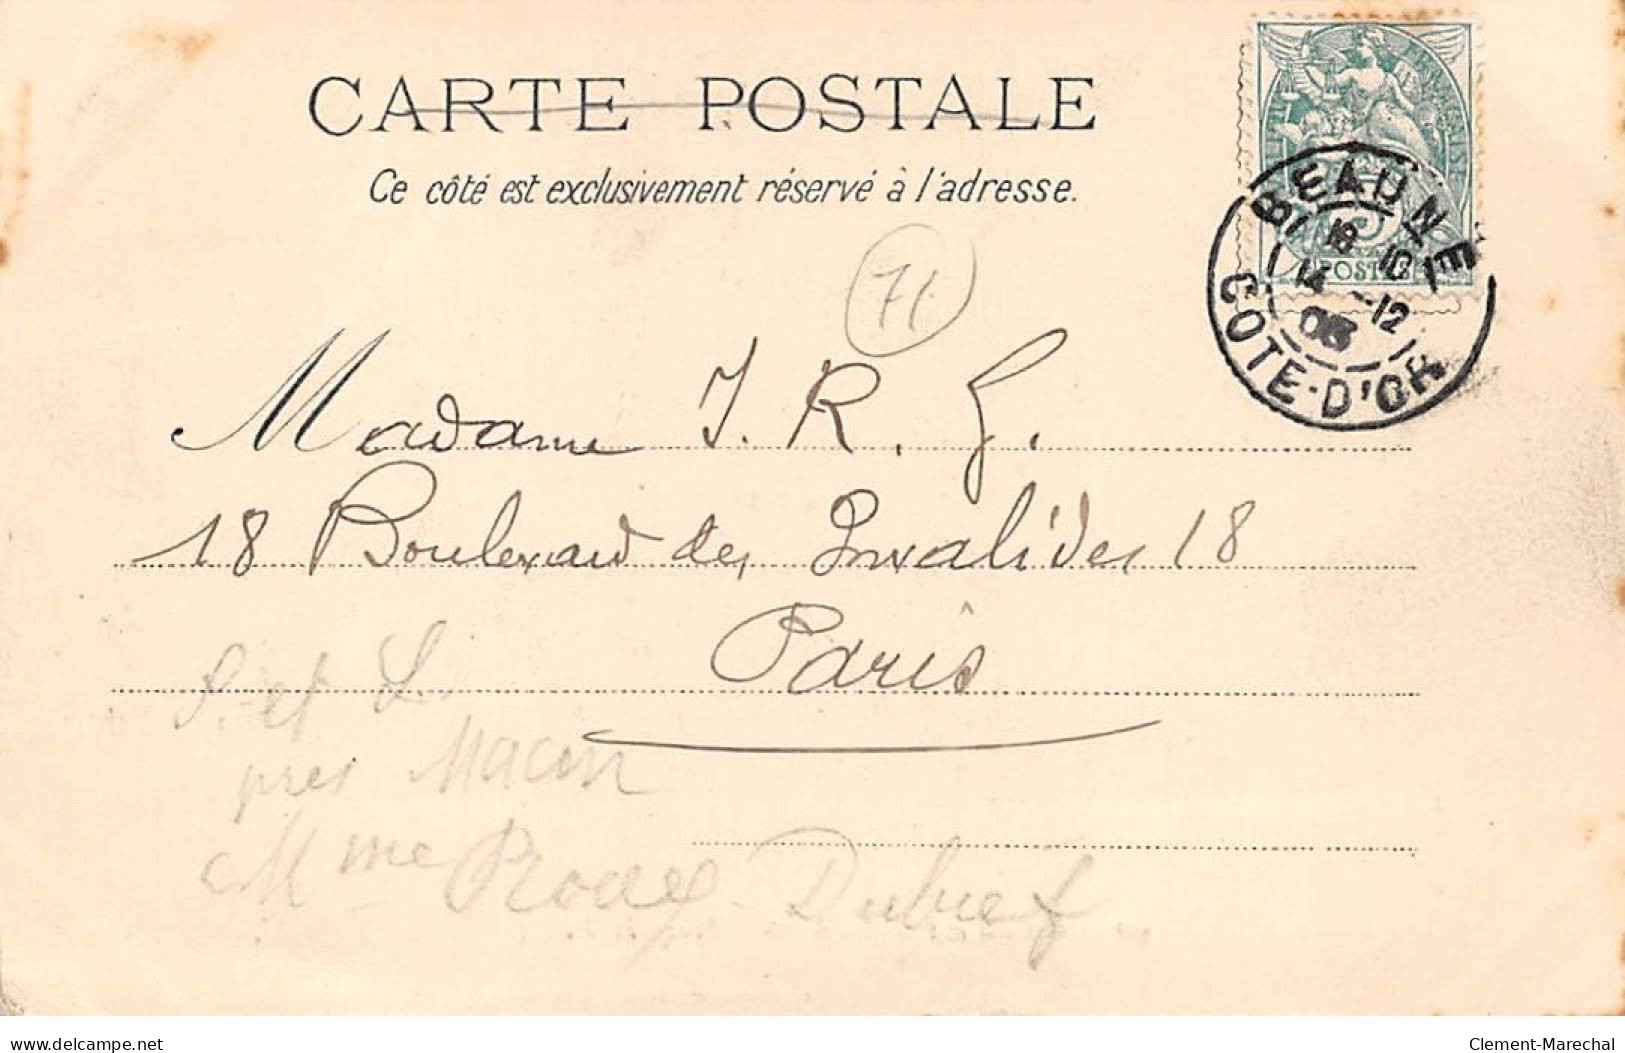 CARTE POSTALE
Ce côté est exclusivement réservé à l'adresse.
POSTES
BEAUNE
18 10
14 -12
03
COTE-D'OR
71
Madame J. R. G.
18 Boulevard des Invalides 18
Paris
S. et L.
pres Macon
Mme Roux-Dubief
delcampe.net
Clement-Marechal